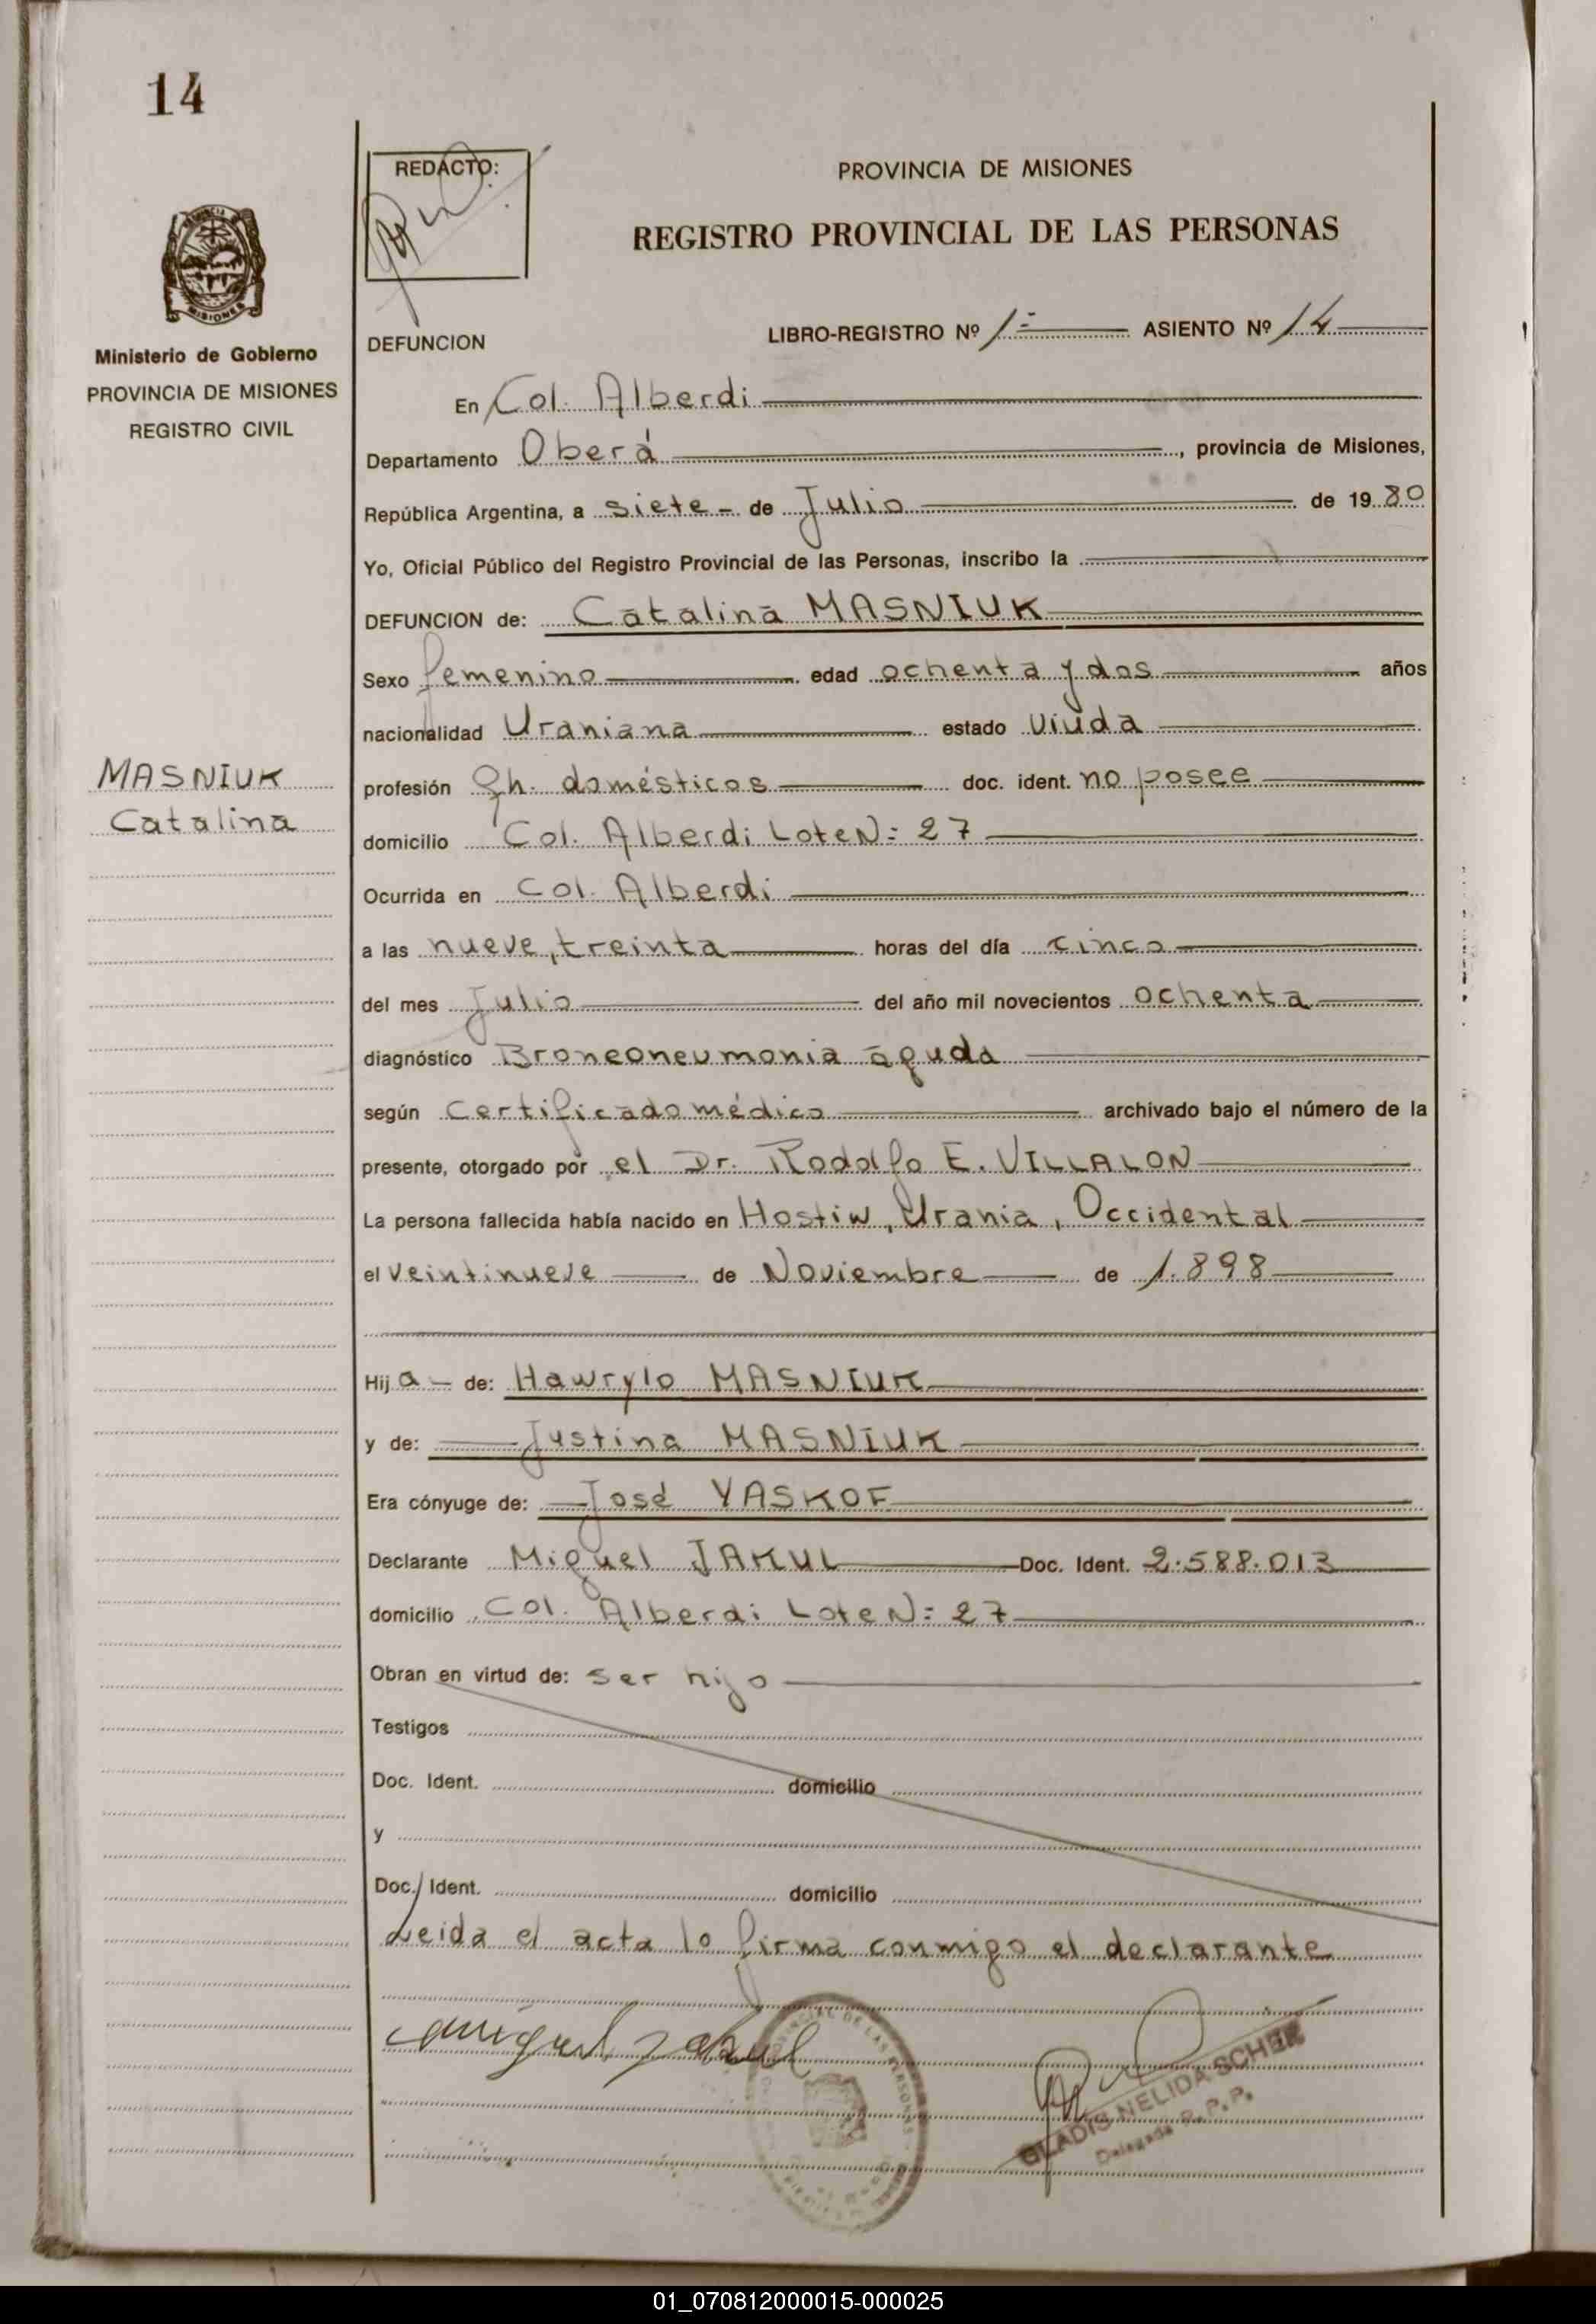 14
REDACTO:
PROVINCIA DE MISIONES
REGISTRO PROVINCIAL DE LAS PERSONAS
MISIONES
Ministerio de Gobierno
PROVINCIA DE MISIONES
REGISTRO CIVIL
DEFUNCION LIBRO-REGISTRO Nº 1= ASIENTO Nº 14
En Col. Alberdi
Departamento Oberá, provincia de Misiones,
República Argentina, a siete - de Julio de 1980
Yo, Oficial Público del Registro Provincial de las Personas, inscribo la
DEFUNCION de: Catalina MASNIUK
Sexo femenino edad ochenta y dos años
nacionalidad Uraniana estado viuda
MASNIUK
Catalina
profesión Qh. domésticos doc. ident. no posee
domicilio Col. Alberdi Lote N= 27
Ocurrida en Col. Alberdi
a las nueve, treinta horas del día cinco
del mes Julio del año mil novecientos ochenta
diagnóstico Broneoneumonia aguda
según certificado médico archivado bajo el número de la
presente, otorgado por el Dr. Rodolfo E. VILLALON
La persona fallecida había nacido en Hostiw, Urania, Occidental
el veintinueve de Noviembre de 1.898
Hija - de: Hawrylo MASNIUK
y de: Justina MASNIUK
Era cónyuge de: José YASKOF
Declarante Miguel JAKUL Doc. Ident. 2.588.013
domicilio Col. Alberdi Lote N= 27
Obran en virtud de: ser hijo
Testigos
Doc. Ident. domicilio
y
Doc. Ident. domicilio
Leida el acta lo firma conmigo el declarante
Miguel Jakul
GLADIS NELIDA SCHER
Delegada R.P.P.
01_070812000015-000025